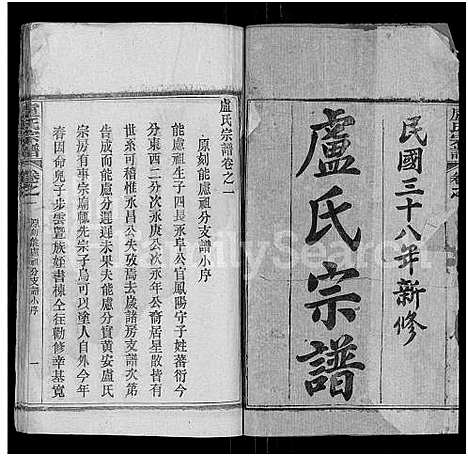 民國三十八年新修
盧氏宗譜
盧氏宗譜卷之二
原刻能慮祖分支譜小序
能慮祖生子四長永阜公官鳳陽守子姓蕃衍今
分東西二分次永庚公次永年公裔居星散皆有
世系可稽惟永昌公失攷焉去歲諸房支譜次第
告成而能慮分遲遲未果夫能慮分實黃安盧氏
宗房有事宗廟輒先宗子烏可以塗人自外今年
春因命兒子步雲暨族姪書棟仝往勸修幸基寬
盧氏宗譜
卷之二
原刻能慮祖分支譜小序
一
FamilySearch